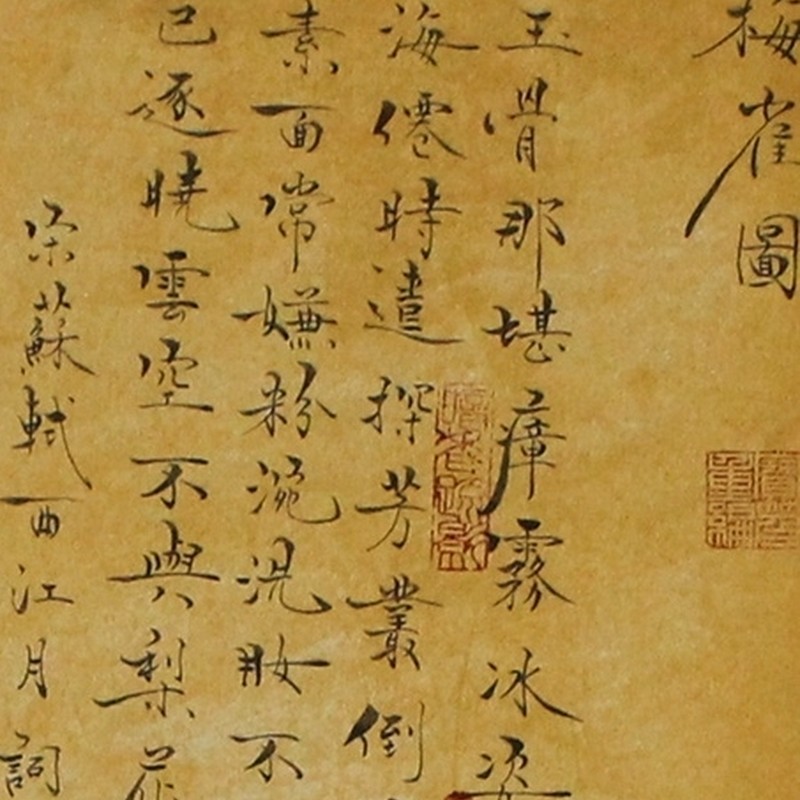 梅雀圖
玉骨那堪瘴霧冰姿
海僊時遣探芳叢倒
素面常嫌粉涴洗妝不
已逐曉雲空不與梨花
宋蘇軾西江月詞